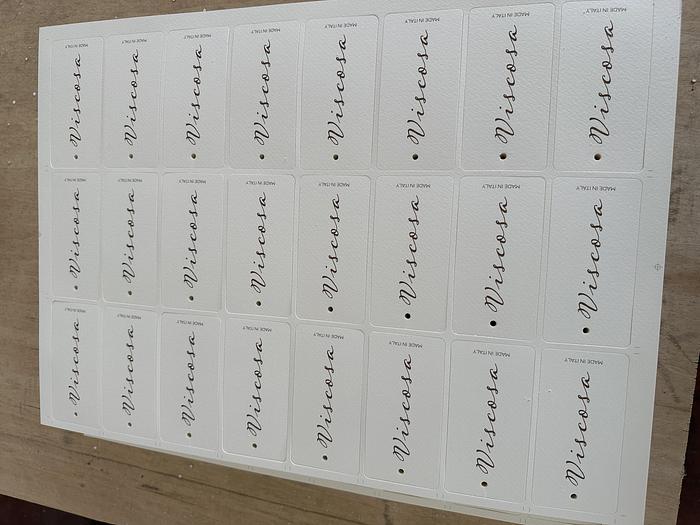 MADE IN ITALY
MADE IN ITALY
MADE IN ITALY
MADE IN ITALY
MADE IN ITALY
MADE IN ITALY
MADE IN ITALY
MADE IN ITALY
Viscosa
Viscosa
Viscosa
Viscosa
Viscosa
Viscosa
Viscosa
Viscosa
MADE IN ITALY
MADE IN ITALY
MADE IN ITALY
MADE IN ITALY
MADE IN ITALY
MADE IN ITALY
MADE IN ITALY
MADE IN ITALY
Viscosa
Viscosa
Viscosa
Viscosa
Viscosa
Viscosa
Viscosa
Viscosa
MADE IN ITALY
MADE IN ITALY
MADE IN ITALY
MADE IN ITALY
MADE IN ITALY
MADE IN ITALY
MADE IN ITALY
MADE IN ITALY
Viscosa
Viscosa
Viscosa
Viscosa
Viscosa
Viscosa
Viscosa
Viscosa